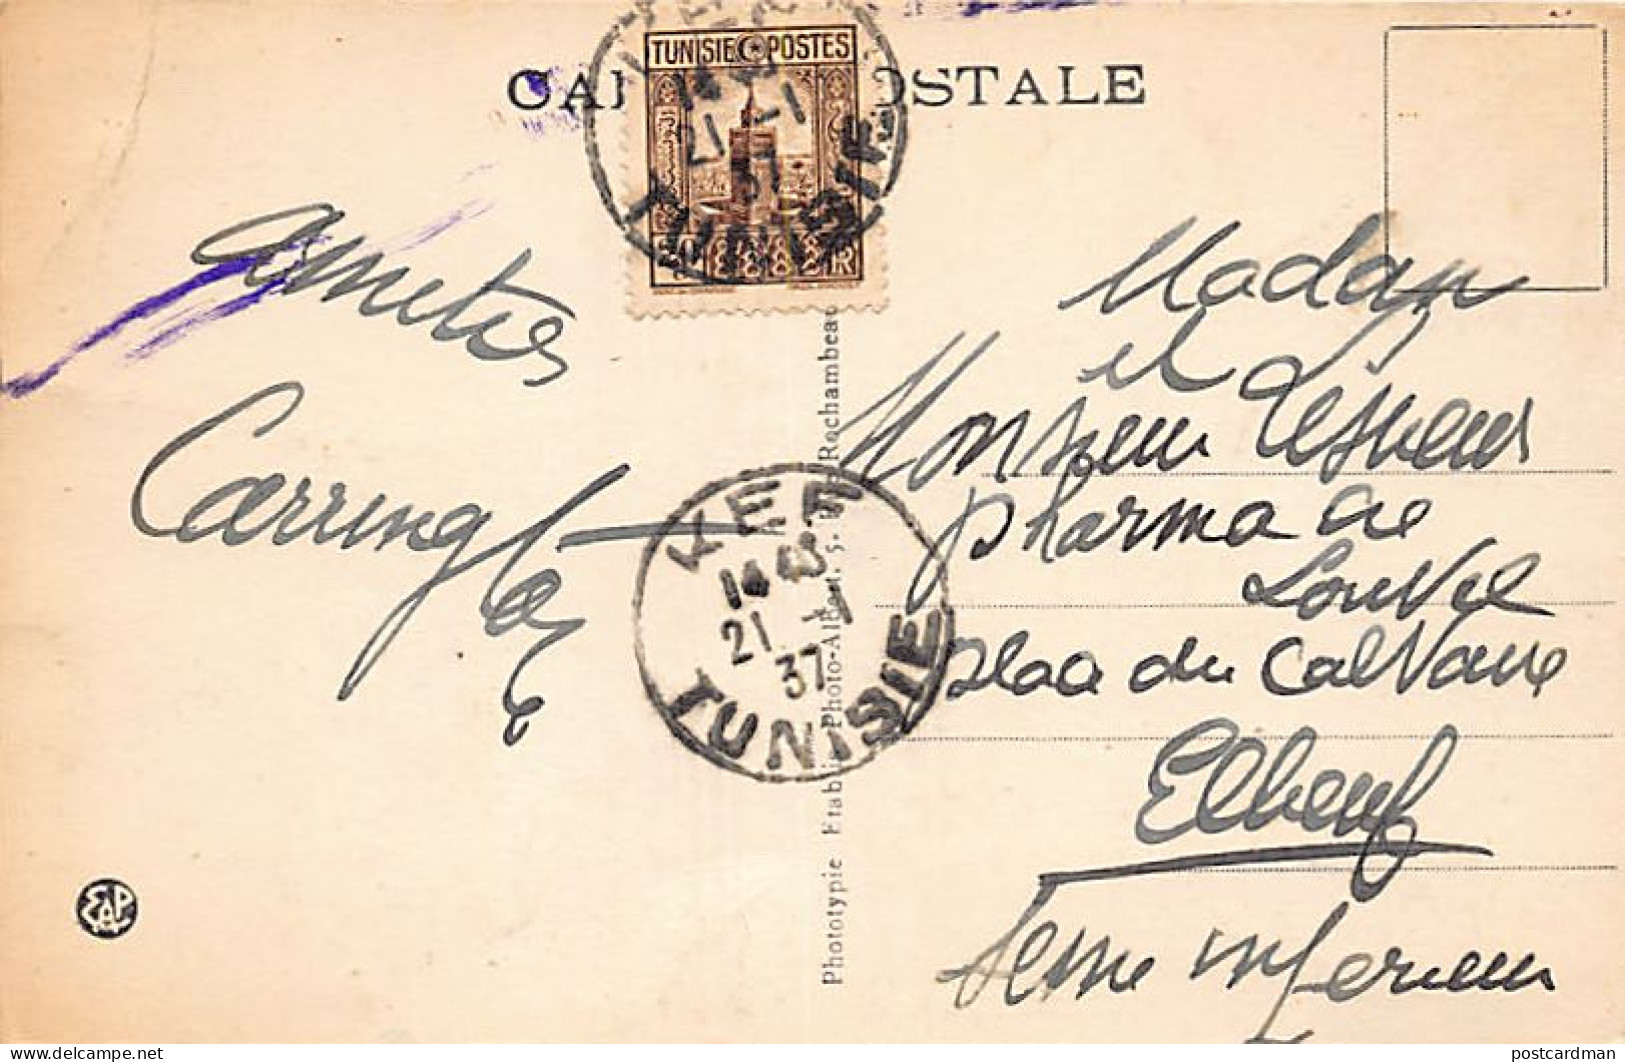 CARTE POSTALE
TUNISIE POSTES
14
21 -1
37
TUNISIE
Amitiés
Madam
et
Monsieur Lesueur
pharma de
Louvie
place du Calvaire
Elbeuf
Seine inferieur
KEF
14 45
21 -1
37
TUNISIE
Phototypie Etablis Photo-Albert, 5, Rochambeau
EAP
delcampe.net
postcardman